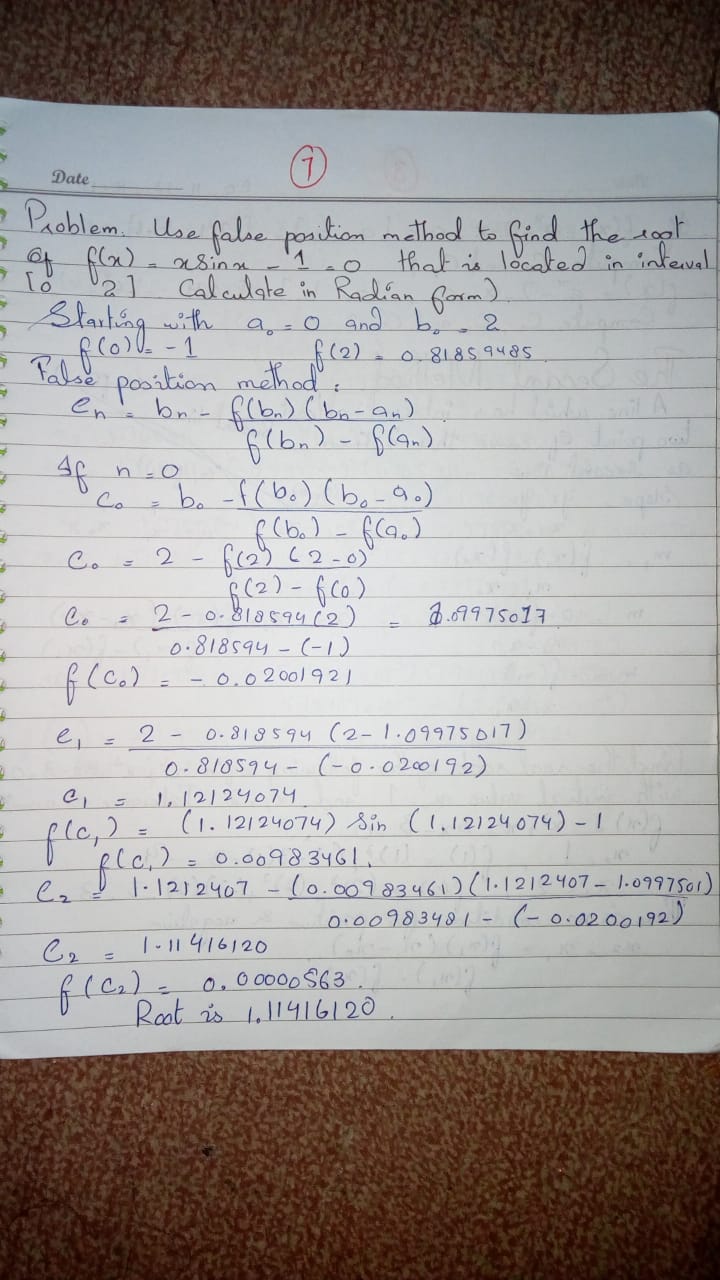 7
Date
Problem. Use false position method to find the root
of f(x) = x Sin x - 1 = 0 that is located in interval
[0 2] Calculate in Radian form)
Starting with a₀ = 0 and b₀ = 2
f(0) = -1 f(2) = 0.81859485
False position method :
Cn = bn - f(bn) (bn - an)
f(bn) - f(an)
If n = 0
C₀ = b₀ - f(b₀) (b₀ - a₀)
f(b₀) - f(a₀)
C₀ = 2 - f(2) (2-0)
f(2) - f(0)
C₀ = 2 - 0.818594(2) = 1.09975017
0.818594 - (-1)
f(C₀) = - 0.02001921
C₁ = 2 - 0.818594 (2-1.09975017)
0.818594 - (-0.0200192)
C₁ = 1.12124074
f(C₁) = (1.12124074) Sin (1.12124074) - 1
f(C₁) = 0.00983461.
C₂ = 1.1212407 - (0.00983461)(1.1212407 - 1.0997501)
0.00983481 - (-0.0200192)
C₂ = 1.11416120
f(C₂) = 0.00000563.
Root is 1.11416120.